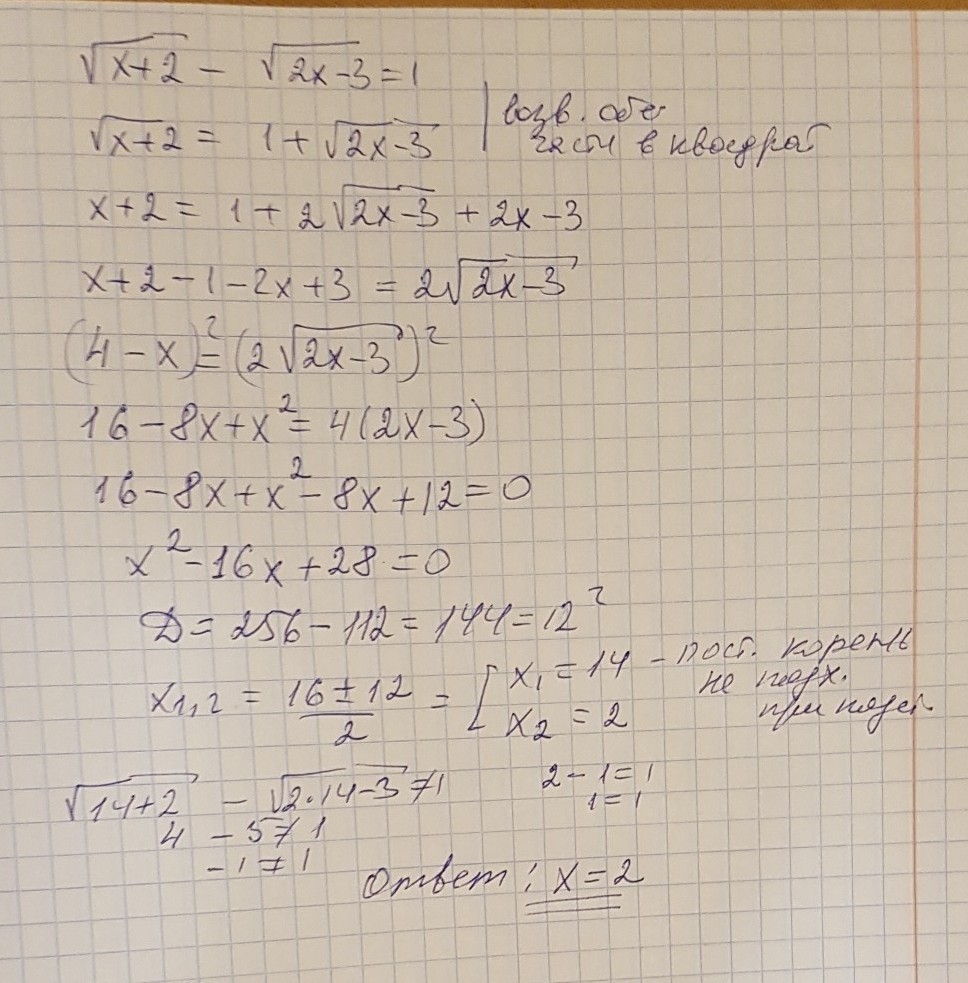 √(x+2) − √(2x−3) = 1
√(x+2) = 1 + √(2x−3) | возв. обе
части в квадрат
x+2 = 1 + 2√(2x−3) + 2x −3
x+2 −1 −2x +3 = 2√(2x−3)
(4 − x)² = (2√(2x−3))²
16 − 8x + x² = 4(2x−3)
16 − 8x + x² − 8x + 12 = 0
x² − 16x + 28 = 0
D = 256 − 112 = 144 = 12²
x₁,₂ = (16 ± 12)/2 = [ x₁ = 14 − пост. корень
не подх.
x₂ = 2 при подст
√(14+2) − √(2·14−3) ≠ 1
4 − 5 ≠ 1
−1 ≠ 1
2 − 1 = 1
1 = 1
Ответ: x = 2